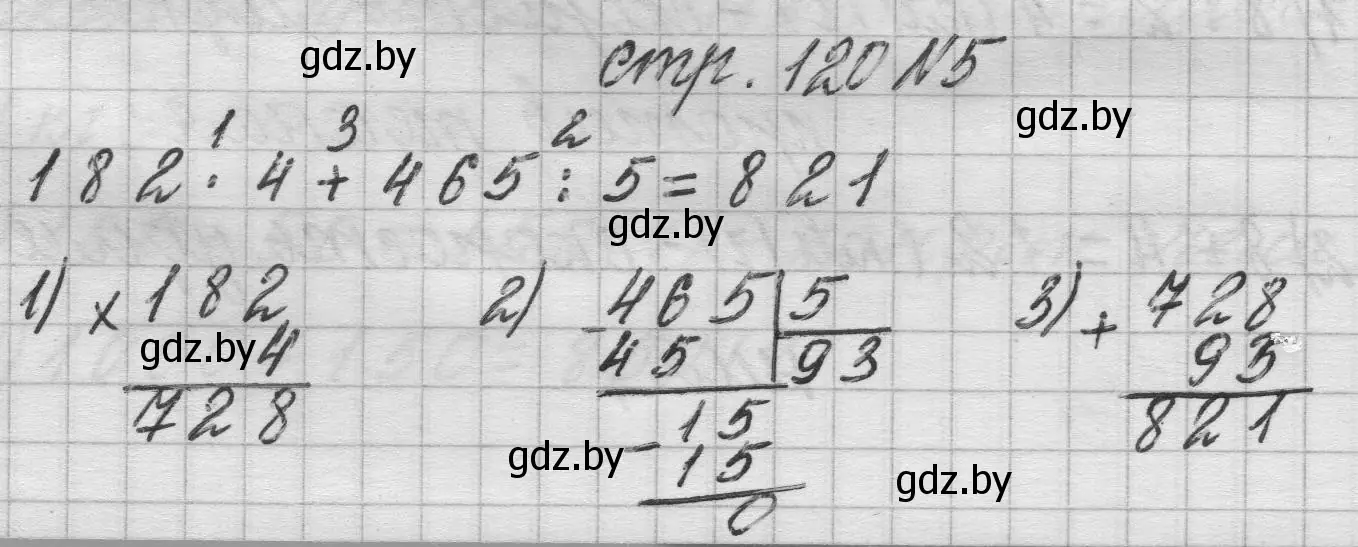 gdz.by
стр. 120 N5
gdz.by
1 3 2
182 · 4 + 465 : 5 = 821
gdz.by
1) × 182 2) - 465 | 5 3) + 728
gdz.by 4 45 | 93 93
728 15 821
gdz.by - 15 gdz.by
0